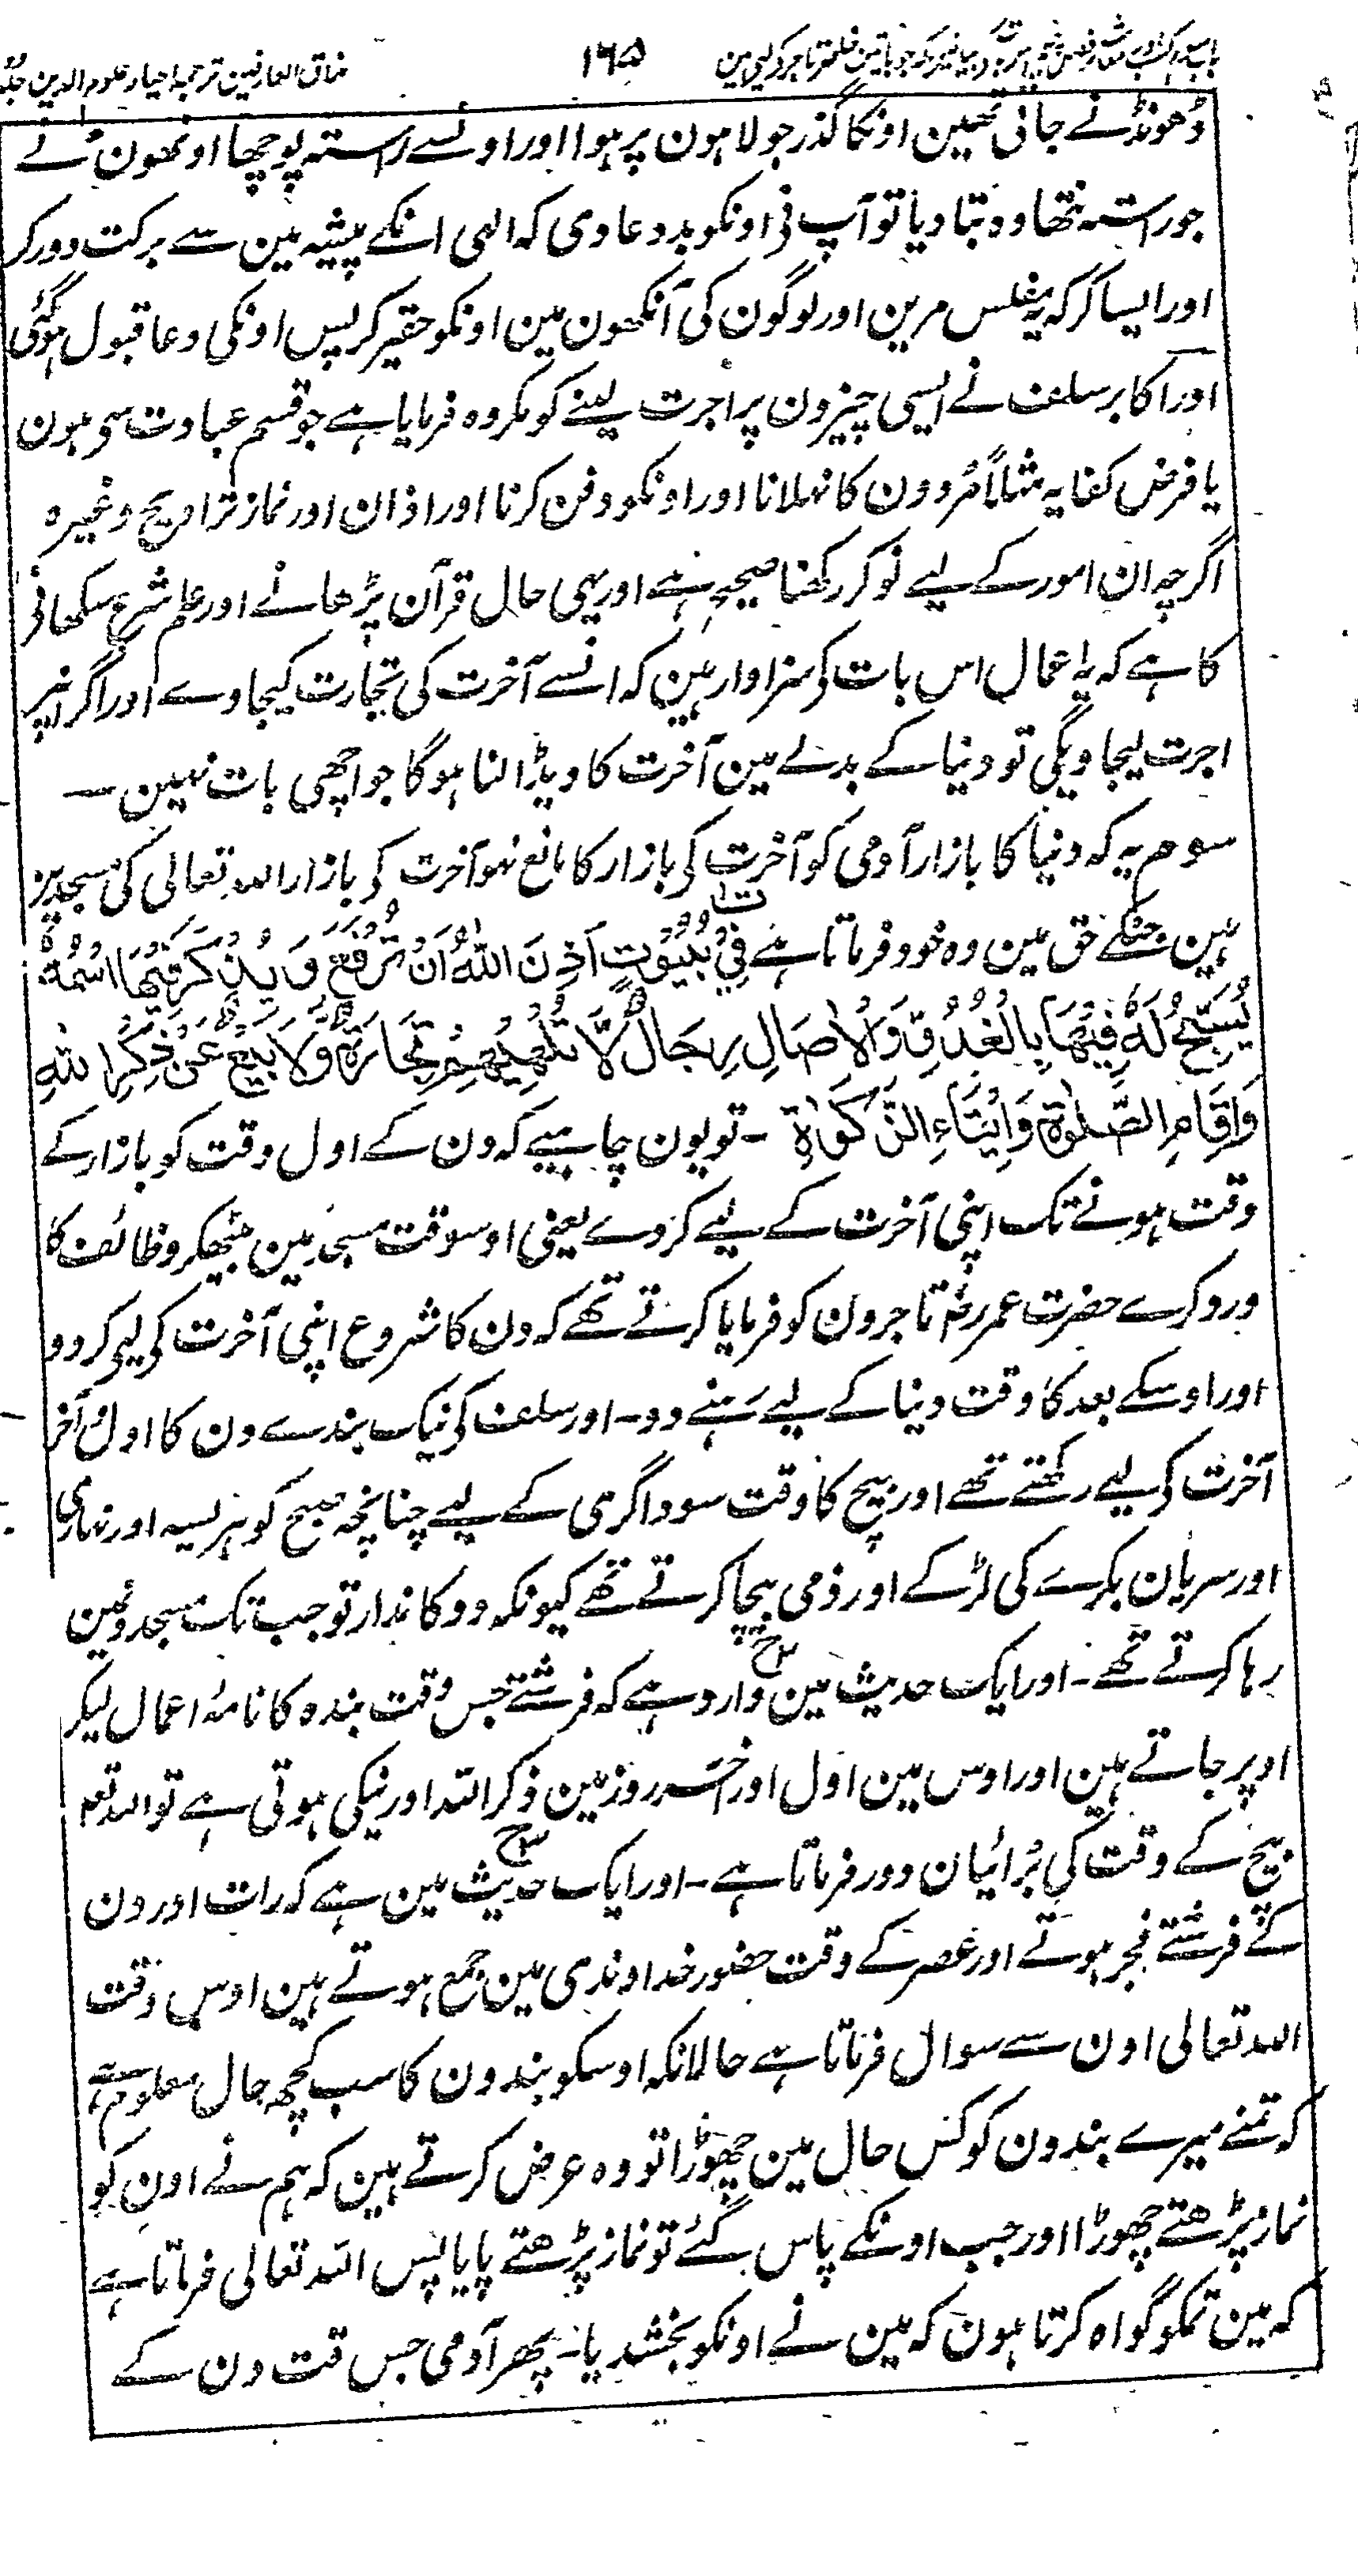 ۱۶۵
مذاق العارفین ترجمہ احیاء علوم الدین جلد
ڈھونڈنے جاتی تھین اونکا گذر جولاہون پر ہوا اور اونسے راستہ پوچھا اونھون نے
جو راستہ نتھا وہ بتا دیا تو آپ نی اونکو بد دعا دی کہ الہی انکے پیشہ مین سے برکت دور کر
اور ایسا کر کہ یہ مفلس مرین اور لوگون کی آنکھون مین اونکو حقیر کر پس اونکی دعا قبول ہوگئی
اور اکابر سلف نے ایسی چیزون پر اجرت لینے کو مکروہ فرمایا ہے جو قسم عبادت سی ہون
یا فرض کفایہ مثلاً مُردون کا نہلانا اور اونکو دفن کرنا اور اذان اور نماز تراویح وغیرہ
اگرچہ ان امور کے لیے نوکر رکھنا صحیح ہے اور یہی حال قرآن پڑھانے اور علم شرع سکھانی
کا ہے کہ یہ اعمال اس بات کی سزاوار ہین کہ انسے آخرت کی تجارت کیجاوے اور اگر انپر
اجرت لیجاویگی تو دنیا کے بدلے مین آخرت کا دیڈالنا ہوگا جو اچھی بات نہین ـ
سوم یہ کہ دنیا کا بازار آدمی کو آخرت کی بازار کا مانع نہو آخرت کی بازار اللہ تعالی کی مسجدین
ہین جنکے حق مین وہ خود فرماتا ہے فِیْ بُیُوْتٍ اَذِنَ اللّٰہُ اَنْ تُرْفَعَ وَیُذْکَرَ فِیْہَا اسْمُہٗ
یُسَبِّحُ لَہٗ فِیْہَا بِالْغُدُوِّ وَالْاٰصَالِ رِجَالٌ لَّا تُلْھِیْھِمْ تِجَارَۃٌ وَّلَا بَیْعٌ عَنْ ذِکْرِ اللّٰہِ
وَاِقَامِ الصَّلٰوۃِ وَاِیْتَاءِ الزَّکٰوۃِ ـ تو یون چاہیے کہ دن کے اول وقت کو بازار کے
وقت ہونے تک اپنی آخرت کے لیے کردے یعنی اوسوقت مسجد مین بیٹھکر وظائف کا
ورد کرے حضرت عمر رضہ تاجرون کو فرمایا کرتے تھے کہ دن کا شروع اپنی آخرت کی لیی کر دو
اور اوسکے بعد کا وقت دنیا کے لیے رہنے دو ـ اور سلف کی نیک بندے دن کا اول و آخر
آخرت کی لیے رکھتے تھے اور بیچ کا وقت سوداگری کے لیے چنانچہ صبح کو ہریسہ اور نہاری
اور سریان بکرے کی لڑکے اور ذمی بیچا کرتے تھے کیونکہ دوکاندار تو جب تک مسجدونمین
رہا کرتے تھے ـ اور ایک حدیث مین وارد ہے کہ فرشتے جس وقت بندہ کا نامۂ اعمال لیکر
اوپر جاتے ہین اور اوس مین اول اور آخر روز مین ذکر اللہ اور نیکی ہوتی ہے تو اللہ تعہ
بیچ کے وقت کی بُرائیان دور فرماتا ہے ـ اور ایک حدیث مین ہے کہ رات اور دن
کے فرشتے فجر ہوتے اور عصر کے وقت حضور خداوندی مین جمع ہوتے ہین اوس وقت
اللہ تعالی اون سے سوال فرماتا ہے حالانکہ اوسکو بندون کا سب کچھ حال معلوم ہے
کہ تمنے میرے بندون کو کس حال مین چھوڑا تو وہ عرض کرتے ہین کہ ہم نے اون کو
نماز پڑھتے چھوڑا اور جب اونکے پاس گئے تو نماز پڑھتے پایا پس اللہ تعالی فرماتا ہے
کہ مین تمکو گواہ کرتا ہون کہ مین نے اونکو بخشدیا ـ پھر آدمی جس قت دن کے